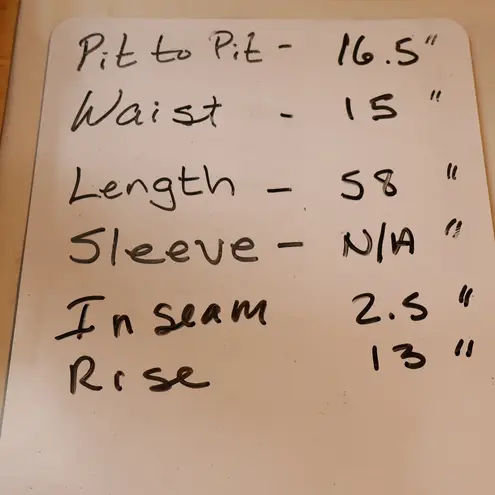 Pit to Pit - 16.5"
Waist - 15 "
Length - 58 "
Sleeve - N/A "
Inseam 2.5 "
Rise 13 "